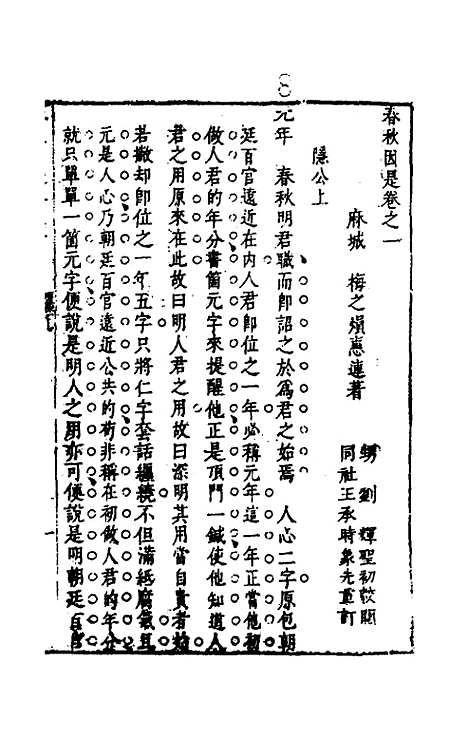 春秋因是卷之一
麻城　梅之熉惠連著
甥　劉　輝聖初校閱
同社王承時象先重訂
隱公上
元年　春秋明君職而即詔之於爲君之始焉　人心二字原包朝
廷百官遠近在内人君即位之一年必稱元年這一年正當他初
做人君的年分書箇元字來提醒他正是頂門一鍼使他知道人
君之用原來在此故曰明人君之用故曰深明其用當自貴者始
若撇却即位之一年五字只將仁字套話纏繞不但滿紙腐氣且
元是人心乃朝廷百官遠近公共的苟非稱在初做人君的年分
就只單單一箇元字便說是明人之用亦可便說是明朝廷百官
一